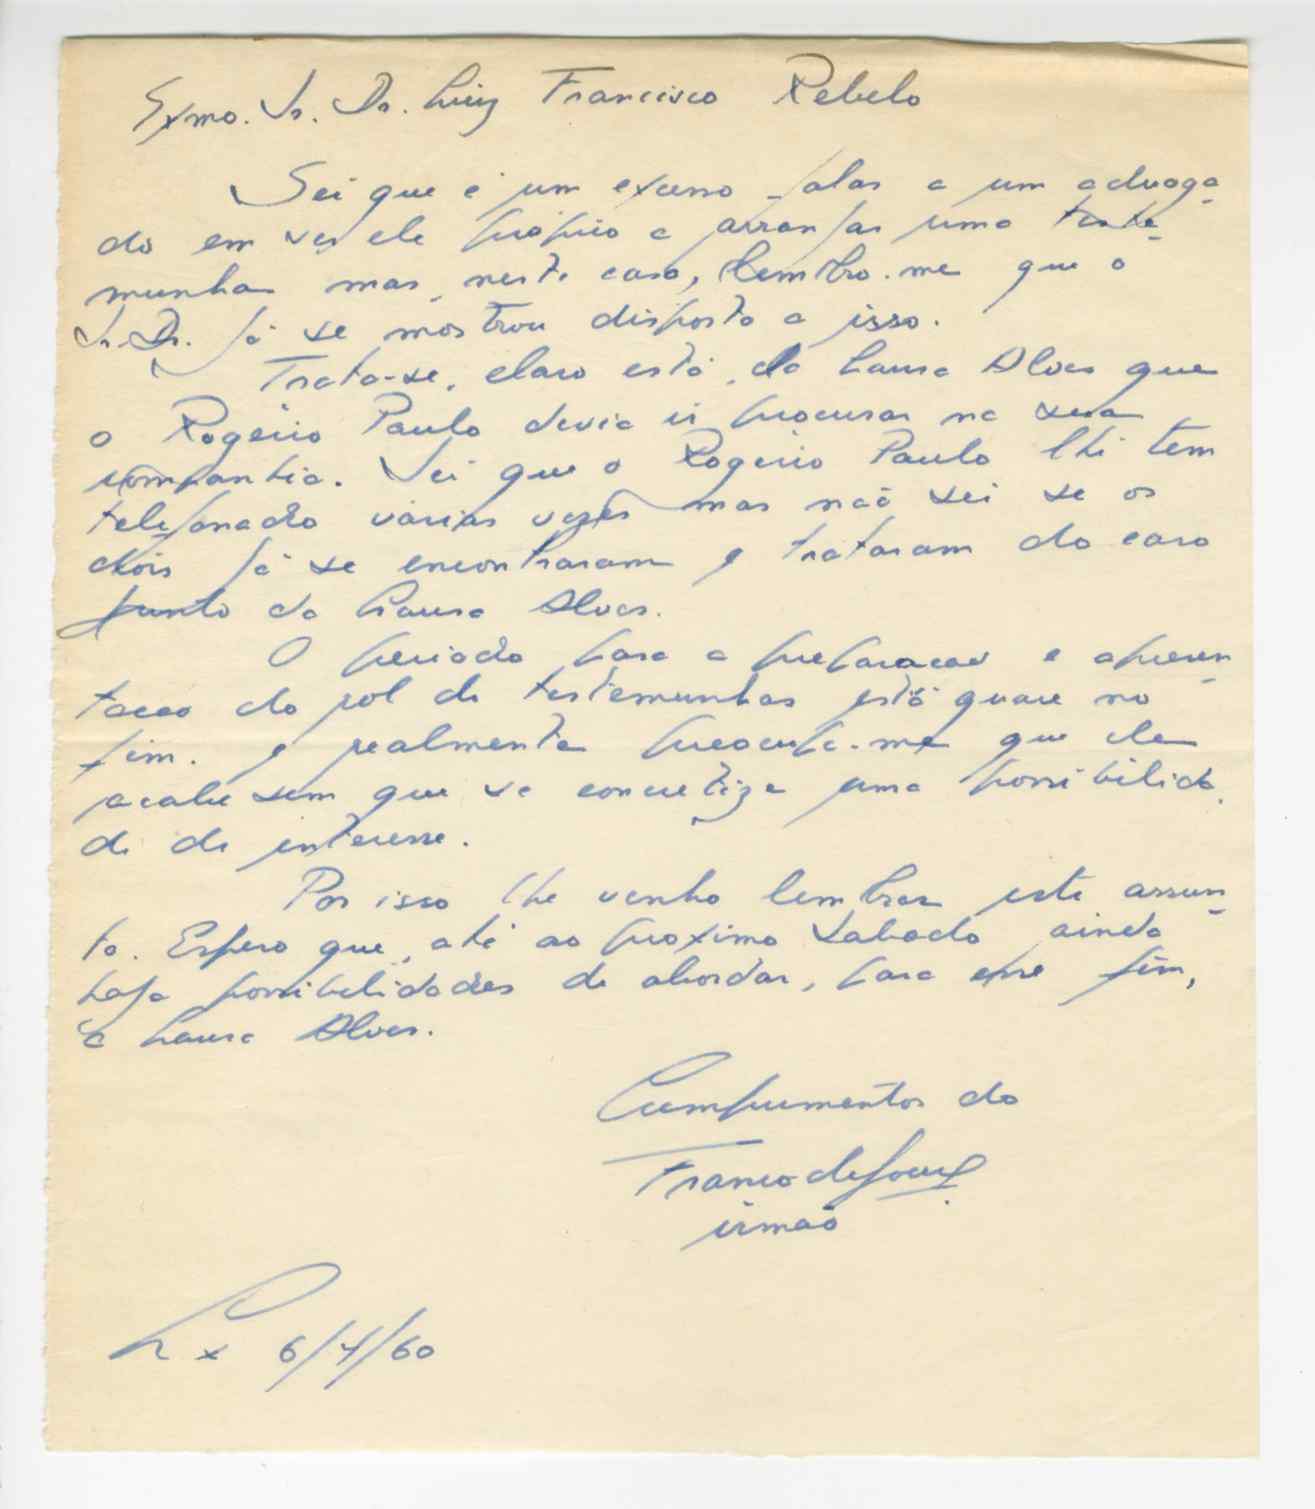 Exmo. Sr. Dr. Luiz Francisco Rebelo
Sei que é um falar a um advoga-
do em vez ele próprio a arranjar uma teste-
munha mas, neste caso, lembro-me que o
Sr. Dr. já se mostrou disposto a isso.
Trata-se, claro está, da Laura Alves que
o Rogério Paulo devia ir procurar na sua
companhia. Sei que o Rogério Paulo lhe tem
telefonado várias vezes mas não sei se os
dois já se encontraram e trataram do caso
junto da Laura Alves.
O periodo para a preparacao e apresen-
tacao do rol de testemunhas está quase no
fim. e realmente preocupa-me que ele
acabe sem que se concretize uma possibilida-
de de interesse.
Por isso lhe venho lembrar este assun-
to. Espero que, até ao proximo sabado ainda
haja possibilidades de abordar, para esse fim,
a Laura Alves.
Cumprimentos do
Franco de Sousa
irmão
Lx 6/4/60